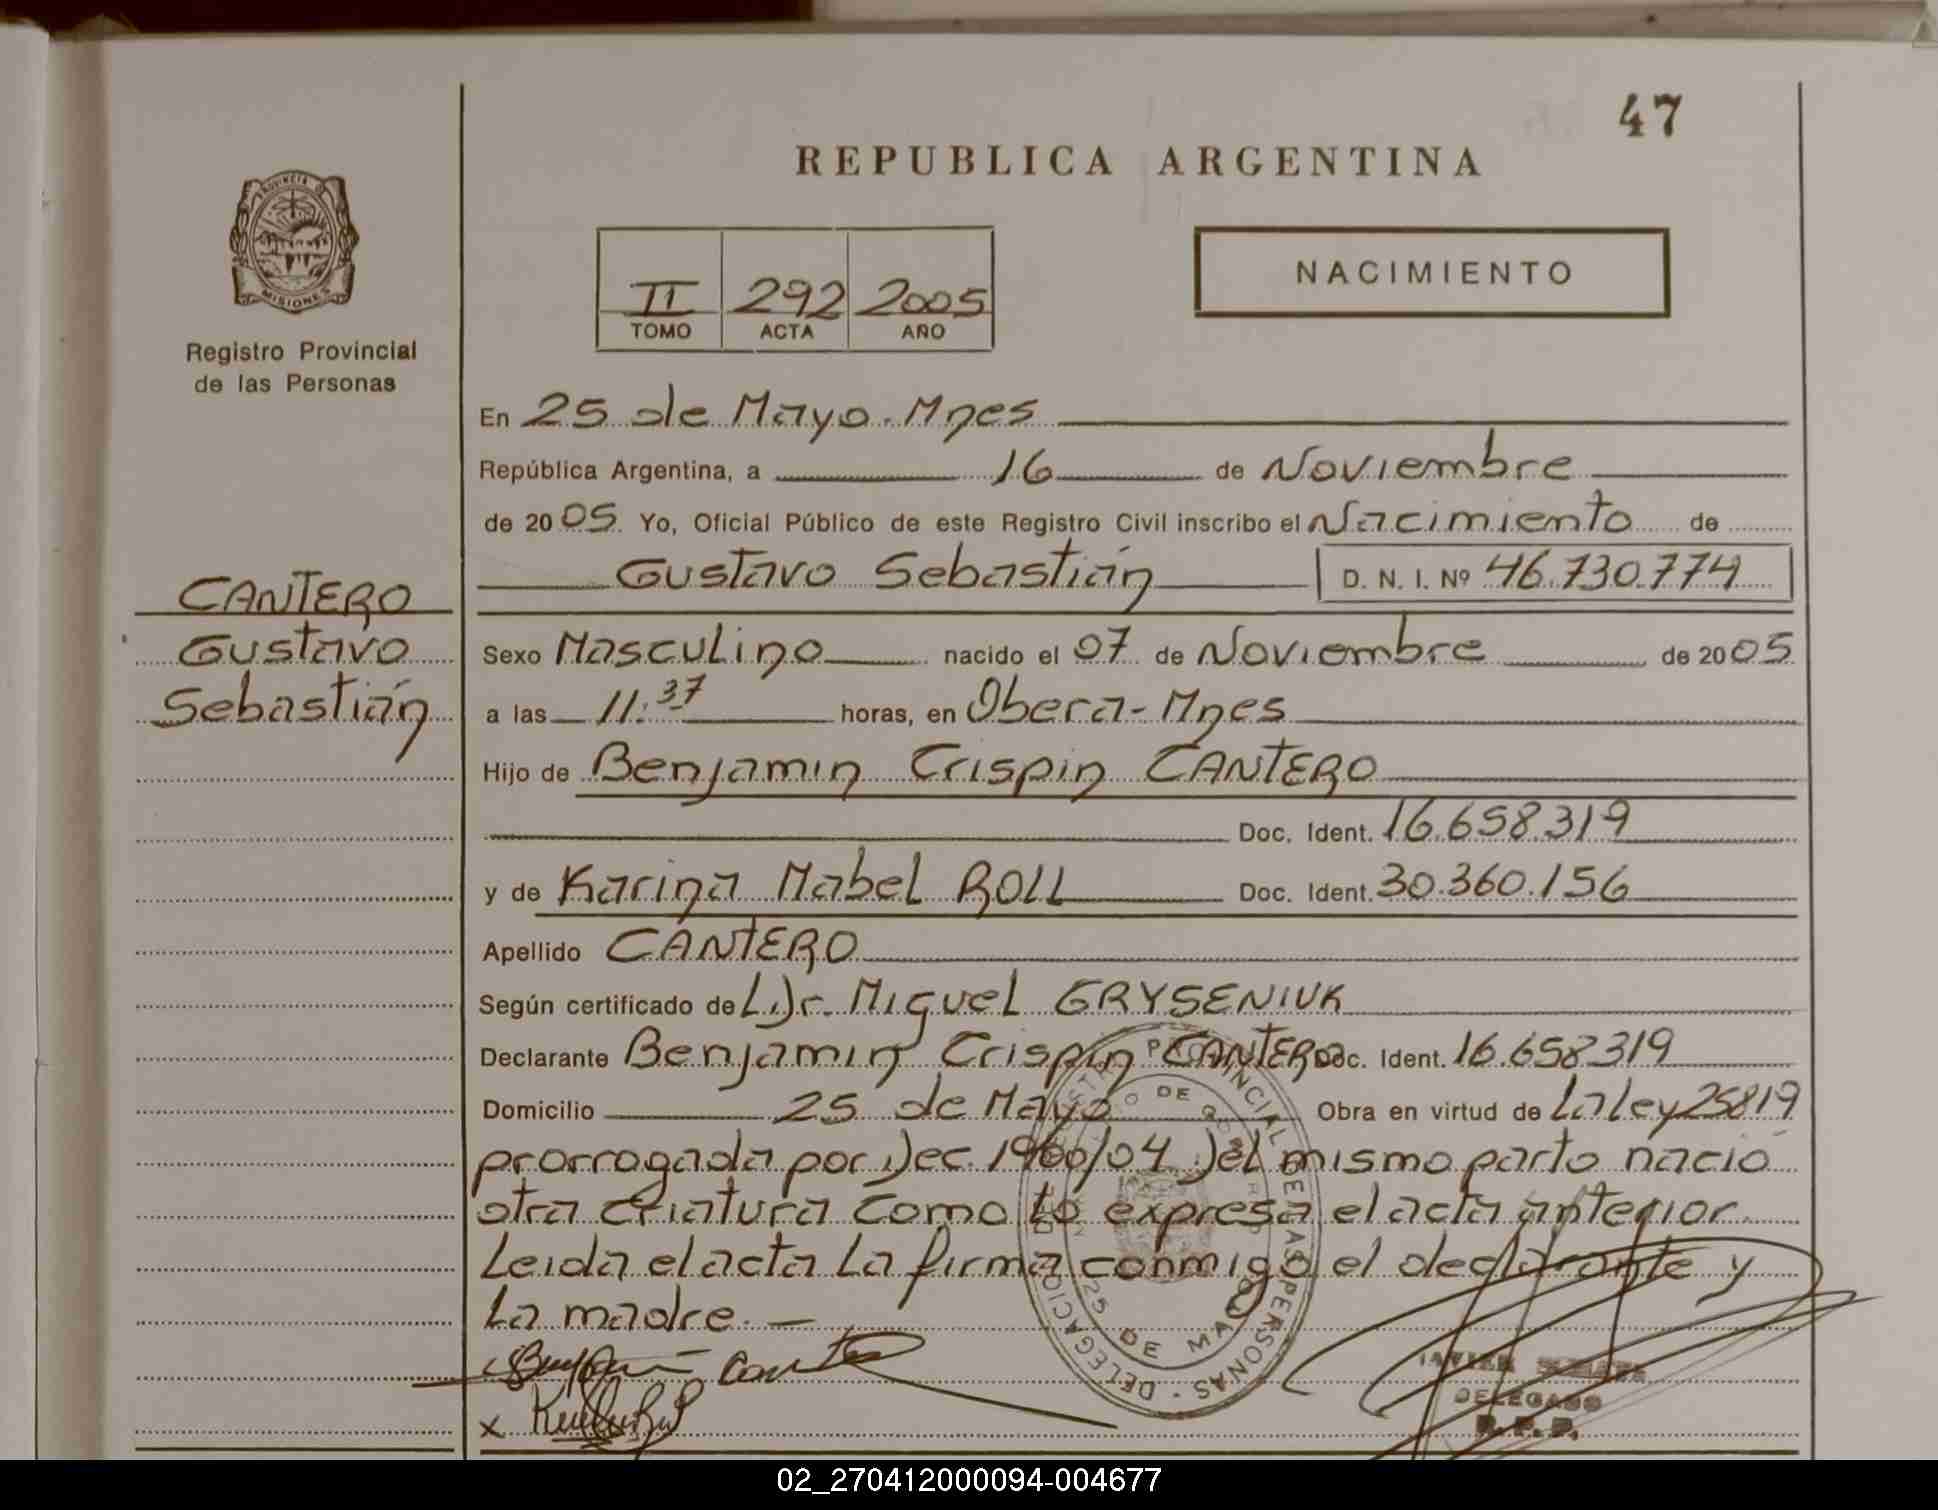 47
REPUBLICA ARGENTINA
PROVINCIA D
MISIONES
Registro Provincial
de las Personas
NACIMIENTO
II 292 2005
TOMO ACTA AÑO
En 25 de Mayo. Mnes
República Argentina, a 16 de Noviembre
de 2005. Yo, Oficial Público de este Registro Civil inscribo el Nacimiento de
Gustavo Sebastián D. N. I. Nº 46.730.774
CANTERO
Gustavo
Sebastián
Sexo Masculino nacido el 07 de Noviembre de 2005
a las 11:37 horas, en Obera - Mnes
Hijo de Benjamin Crispin CANTERO
Doc. Ident. 16.658.319
y de Karina Mabel ROLL Doc. Ident. 30.360.156
Apellido CANTERO
Según certificado del Dr. Miguel GRYSENIUK
Declarante Benjamin Crispin CANTERO Doc. Ident. 16.658319
Domicilio 25 de Mayo Obra en virtud de La ley 25819
prorrogada por Dec. 1960/04 Del mismo parto nació
otra criatura como lo expresa el acta anterior
Leida el acta La firma conmigo el declarante y
La madre. —
x
PROVINCIAL DE LAS PERSONAS - DELEGACION
25 DE MAYO
JAVIER
DELEGADO
R.P.P.
02_270412000094-004677